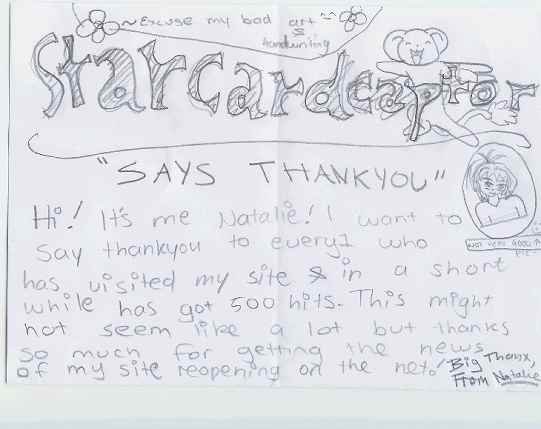 ~Excuse my bad art
&
handwriting
Starcardcaptor
"SAYS THANKYOU"
Hi! It's me Natalie! I want to
say thankyou to every1 who
has visited my site & in a short
while has got 500 hits. This might
not seem like a lot but thanks
so much for getting the news
of my site reopening on the net!
Big Thanx,
From Natalie
NOT VERY GOOD